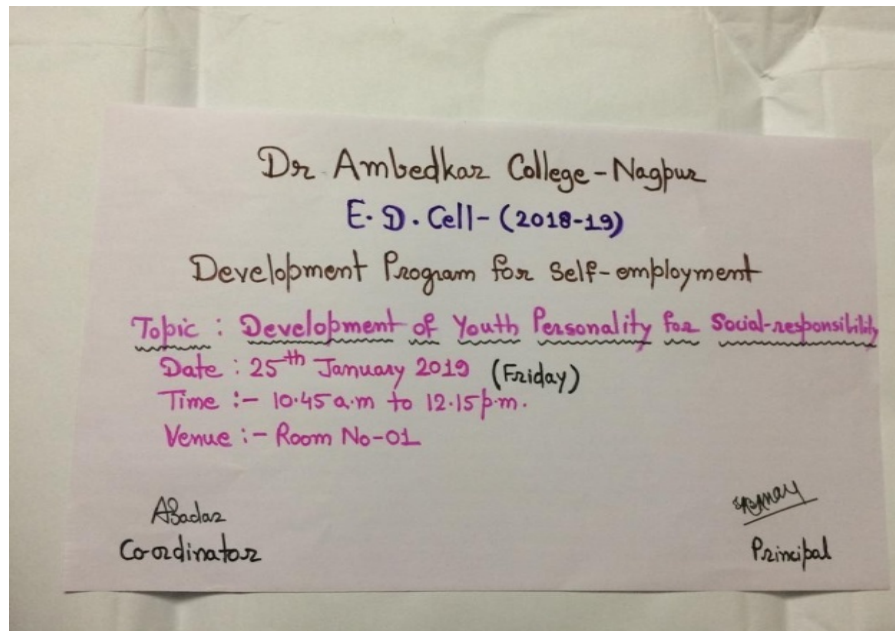 Dr Ambedkar College-Nagpur
E. D. Cell-(2018-19)
Development Program for Self-employment
Topic : Development of Youth Personality for Social-responsibility
Date : 25th January 2019 (Friday)
Time :- 10.45 a.m to 12.15 p.m.
Venue :- Room No-01
Co-ordinator
Principal